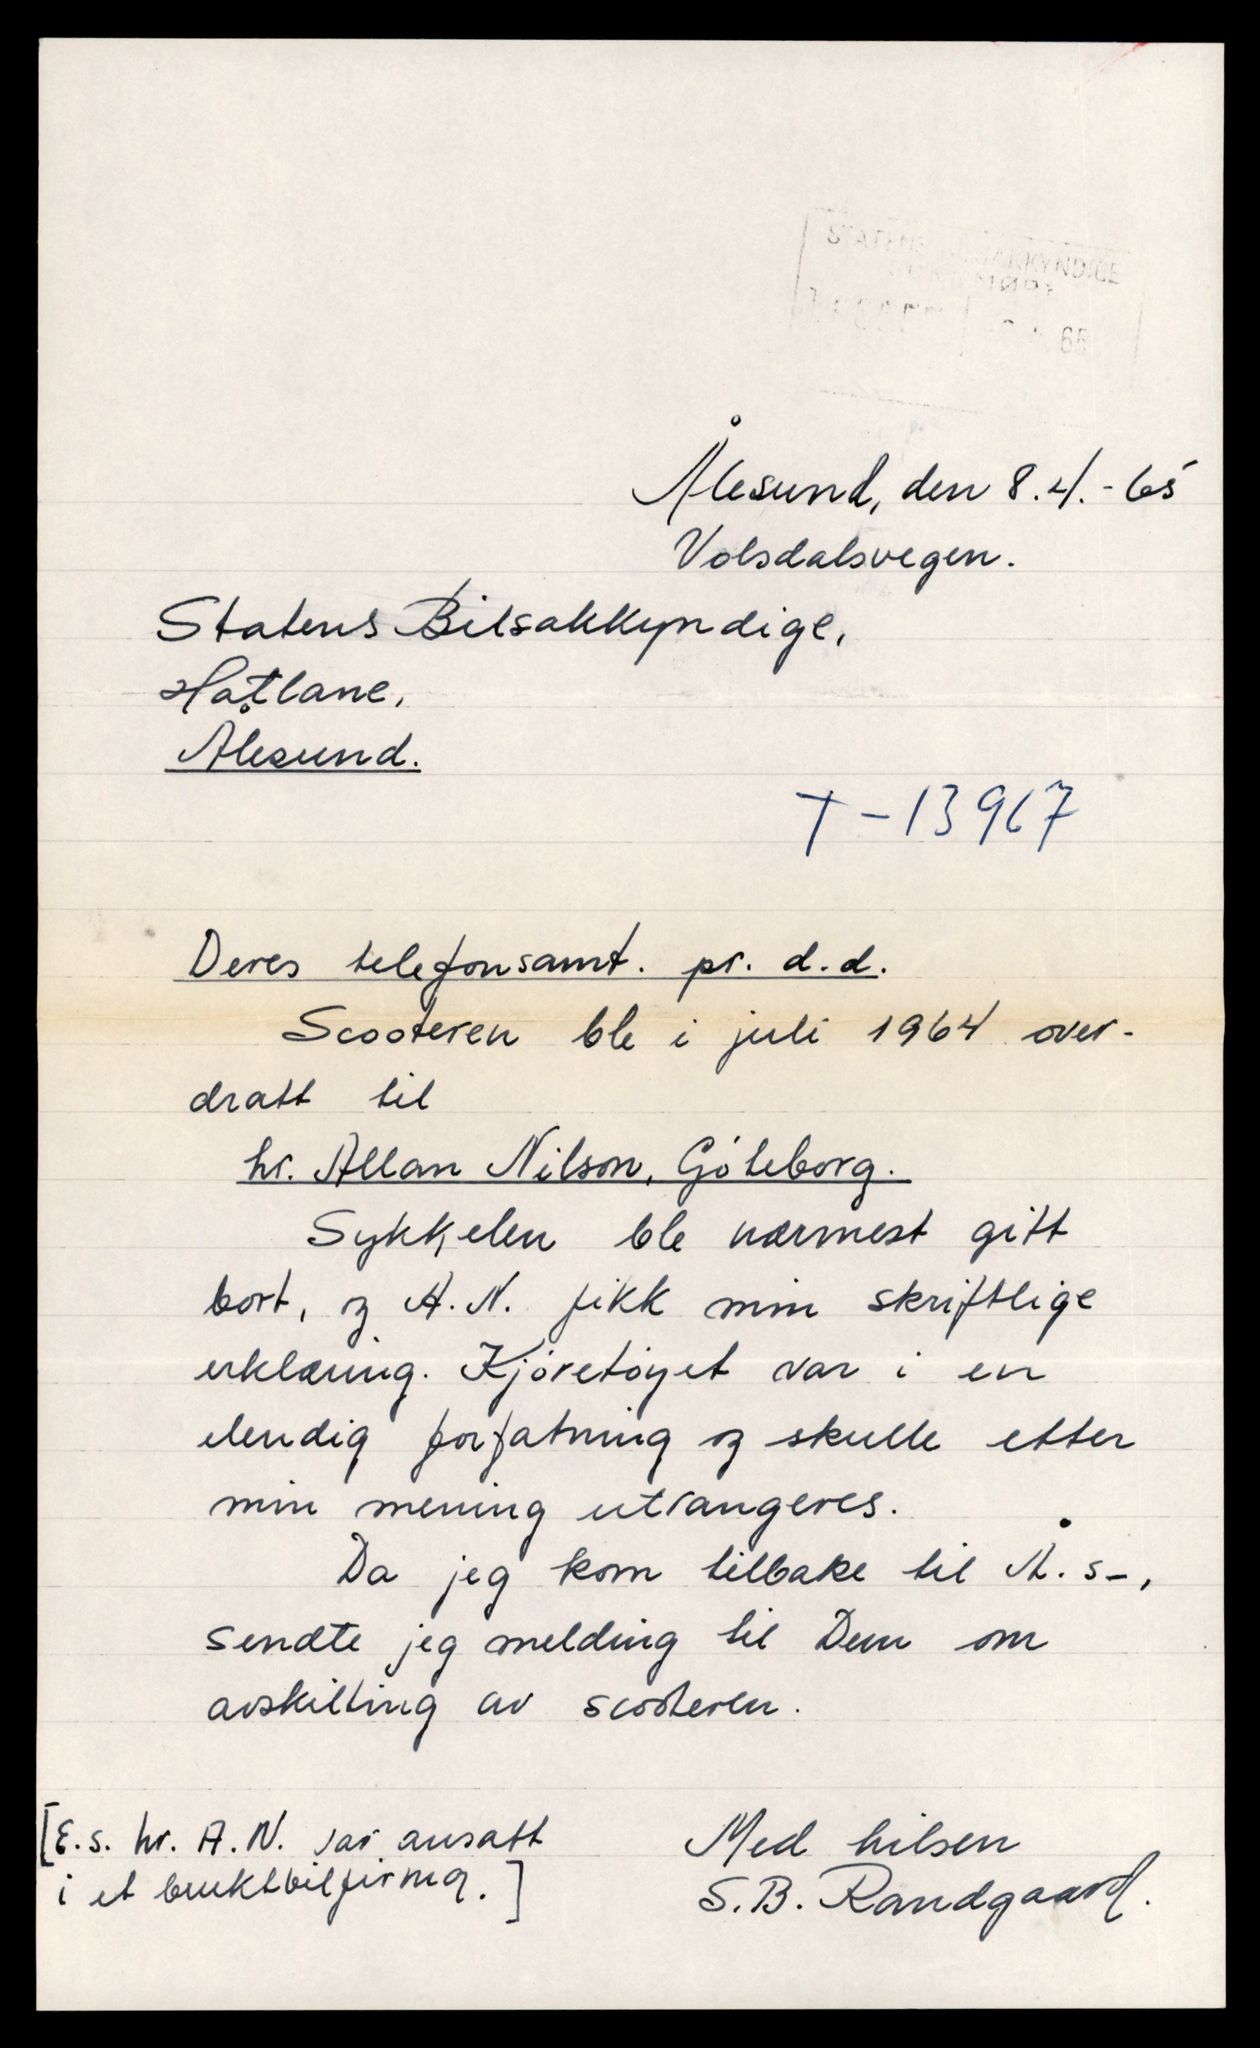 STATENS BILSAKKYNDIGE
65
Ålesund, den 8.4.-65
Volsdalsvegen.
Statens Bilsakkyndige,
Hatlane,
Ålesund.
T-13967
Deres telefonsamt. pr. d.d.
Scooteren ble i juli 1964 over-
dratt til
hr. Allan Nilson, Göteborg.
Sykkelen ble nærmest gitt
bort, og A.N. fikk min skriftlige
erklæring. Kjøretøyet var i en
elendig forfatning og skulle etter
min mening utrangeres.
Da jeg kom tilbake til Å.s-,
sendte jeg melding til Dem om
avskilting av scooteren.
[E.s. hr. A.N. var ansatt
i et bruktbilfirma.]
Med hilsen
S.B. Randgaard.